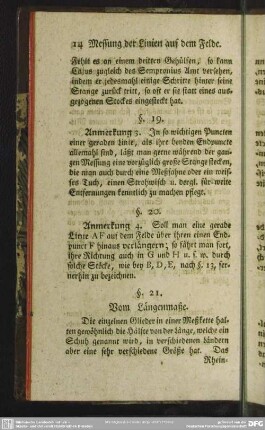 14 Messung der Linien auf dem Felde.
Fehlt es an einem dritten Gehülfen, so kann
Cajus zugleich des Sempronius Amt versehen,
indem er jedesmahl einige Schritte hinter seine
Stange zurück tritt, so oft er sie statt eines aus-
gezogenen Stockes eingesteckt hat.
§. 19.
Anmerkung 3. In so wichtigen Puncten
einer geraden Linie, als ihre beyden Endpuncte
allemahl sind, läßt man gerne während der gan-
zen Messung eine vorzüglich große Stange stecken,
die man auch durch eine Meßfahne oder ein weis-
ses Tuch, einen Strohwisch u. dergl. für weite
Entfernungen kenntlich zu machen pflegt.
§. 20.
Anmerkung 4. Soll man eine gerade
Linie AF auf dem Felde über ihren einen End-
punct F hinaus verlängern; so fährt man fort,
ihre Richtung auch in G und H u. s. w. durch
solche Stöcke, wie bey B, D, E, nach §. 13, fer-
nerhin zu bezeichnen.
§. 21.
Vom Längenmaße.
Die einzelnen Glieder in einer Meßkette hal-
ten gewöhnlich die Hälfte von der Länge, welche ein
Schuh genannt wird, in verschiedenen Ländern
aber eine sehr verschiedene Größe hat. Das
Rhein-
DFG